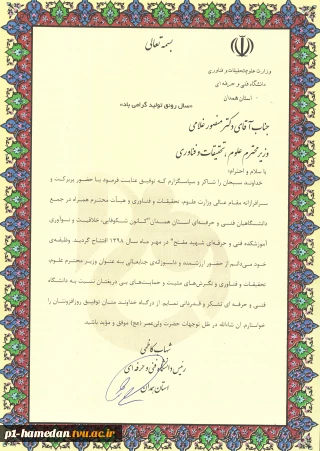 بسمه تعالی
وزارت علوم تحقیقات و فناوری
دانشگاه فنی و حرفه ای
استان همدان
«سال رونق تولید گرامی باد»
جناب آقای دکتر منصور غلامی
وزیر محترم علوم، تحقیقات و فناوری
با سلام و احترام؛
خداوند سبحان را شاکر و سپاسگزارم که توفیق عنایت فرمود با حضور پربرکت و
سرافرازانه مقام عالی وزارت علوم، تحقیقات و فناوری و هیأت محترم همراه در جمع
دانشگاهیان فنی و حرفه‌ای استان همدان "کانون شکوفایی، خلاقیت و نوآوری
آموزشکده فنی و حرفه‌ای شهید مفتح" در مهر ماه سال ۱۳۹۸ افتتاح گردید. وظیفه‌ی
خود می‌دانم از حضور ارزشمند و دلسوزانه‌ی جنابعالی به عنوان وزیر محترم علوم،
تحقیقات و فناوری و نگرش‌های مثبت و حمایت‌های بی دریغتان نسبت به دانشگاه
فنی و حرفه ای تشکر و قدردانی نمایم. از درگاه خداوند منان توفیق روزافزونتان را
خواستارم. ان شاءالله در ظل توجهات حضرت ولی‌عصر (عج) موفق و مؤید باشید.
شهاب کاظمی
رئیس دانشگاه فنی و حرفه ای
استان همدان
p1-hamedan.tvu.ac.ir